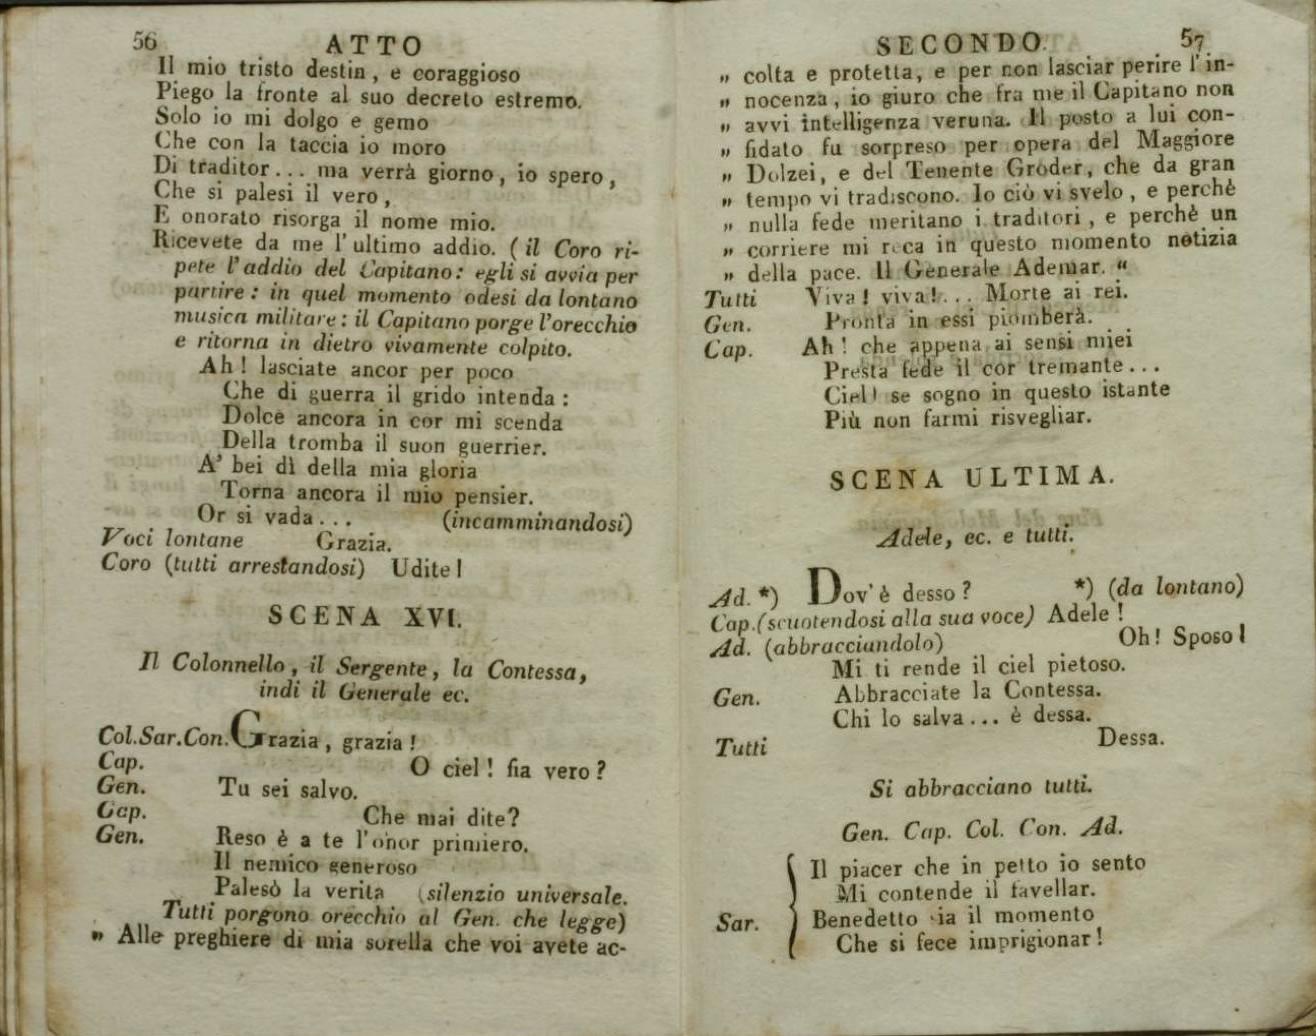 56 ATTO
Il mio tristo destin, e coraggioso
Piego la fronte al suo decreto estremo.
Solo io mi dolgo e gemo
Che con la taccia io moro
Di traditor... ma verrà giorno, io spero,
Che si palesi il vero,
E onorato risorga il nome mio.
Ricevete da me l'ultimo addio. (il Coro ri-
pete l'addio del Capitano: egli si avvia per
partire: in quel momento odesi da lontano
musica militare: il Capitano porge l'orecchio
e ritorna in dietro vivamente colpito.
Ah! lasciate ancor per poco
Che di guerra il grido intenda:
Dolce ancora in cor mi scenda
Della tromba il suon guerrier.
A' bei dì della mia gloria
Torna ancora il mio pensier.
Or si vada... (incamminandosi)
Voci lontane Grazia.
Coro (tutti arrestandosi) Udite!
SCENA XVI.
Il Colonnello, il Sergente, la Contessa,
indi il Generale ec.
Col.Sar.Con. Grazia, grazia!
Cap. O ciel! fia vero?
Gen. Tu sei salvo.
Cap. Che mai dite?
Gen. Reso è a te l'onor primiero.
Il nemico generoso
Palesò la verità (silenzio universale.
Tutti porgono orecchio al Gen. che legge)
„ Alle preghiere di mia sorella che voi avete ac-
SECONDO. 57
„ colta e protetta, e per non lasciar perire l'in-
„ nocenza, io giuro che fra me il Capitano non
„ avvi intelligenza veruna. Il posto a lui con-
„ fidato fu sorpreso per opera del Maggiore
„ Dolzei, e del Tenente Gröder, che da gran
„ tempo vi tradiscono. Io ciò vi svelo, e perchè
„ nulla fede meritano i traditori, e perchè un
„ corriere mi reca in questo momento notizia
„ della pace. Il Generale Ademar. “
Tutti Viva! viva!... Morte ai rei.
Gen. Pronta in essi piomberà.
Cap. Ah! che appena ai sensi miei
Presta fede il cor tremante...
Ciel! se sogno in questo istante
Più non farmi risvegliar.
SCENA ULTIMA.
Adele, ec. e tutti.
Ad. *) Dov'è desso? *) (da lontano)
Cap. (scuotendosi alla sua voce) Adele!
Ad. (abbracciandolo) Oh! Sposo!
Mi ti rende il ciel pietoso.
Gen. Abbracciate la Contessa.
Chi lo salva... è dessa.
Tutti Dessa.
Si abbracciano tutti.
Gen. Cap. Col. Con. Ad.
Il piacer che in petto io sento
Mi contende il favellar.
Sar. Benedetto sia il momento
Che si fece imprigionar!